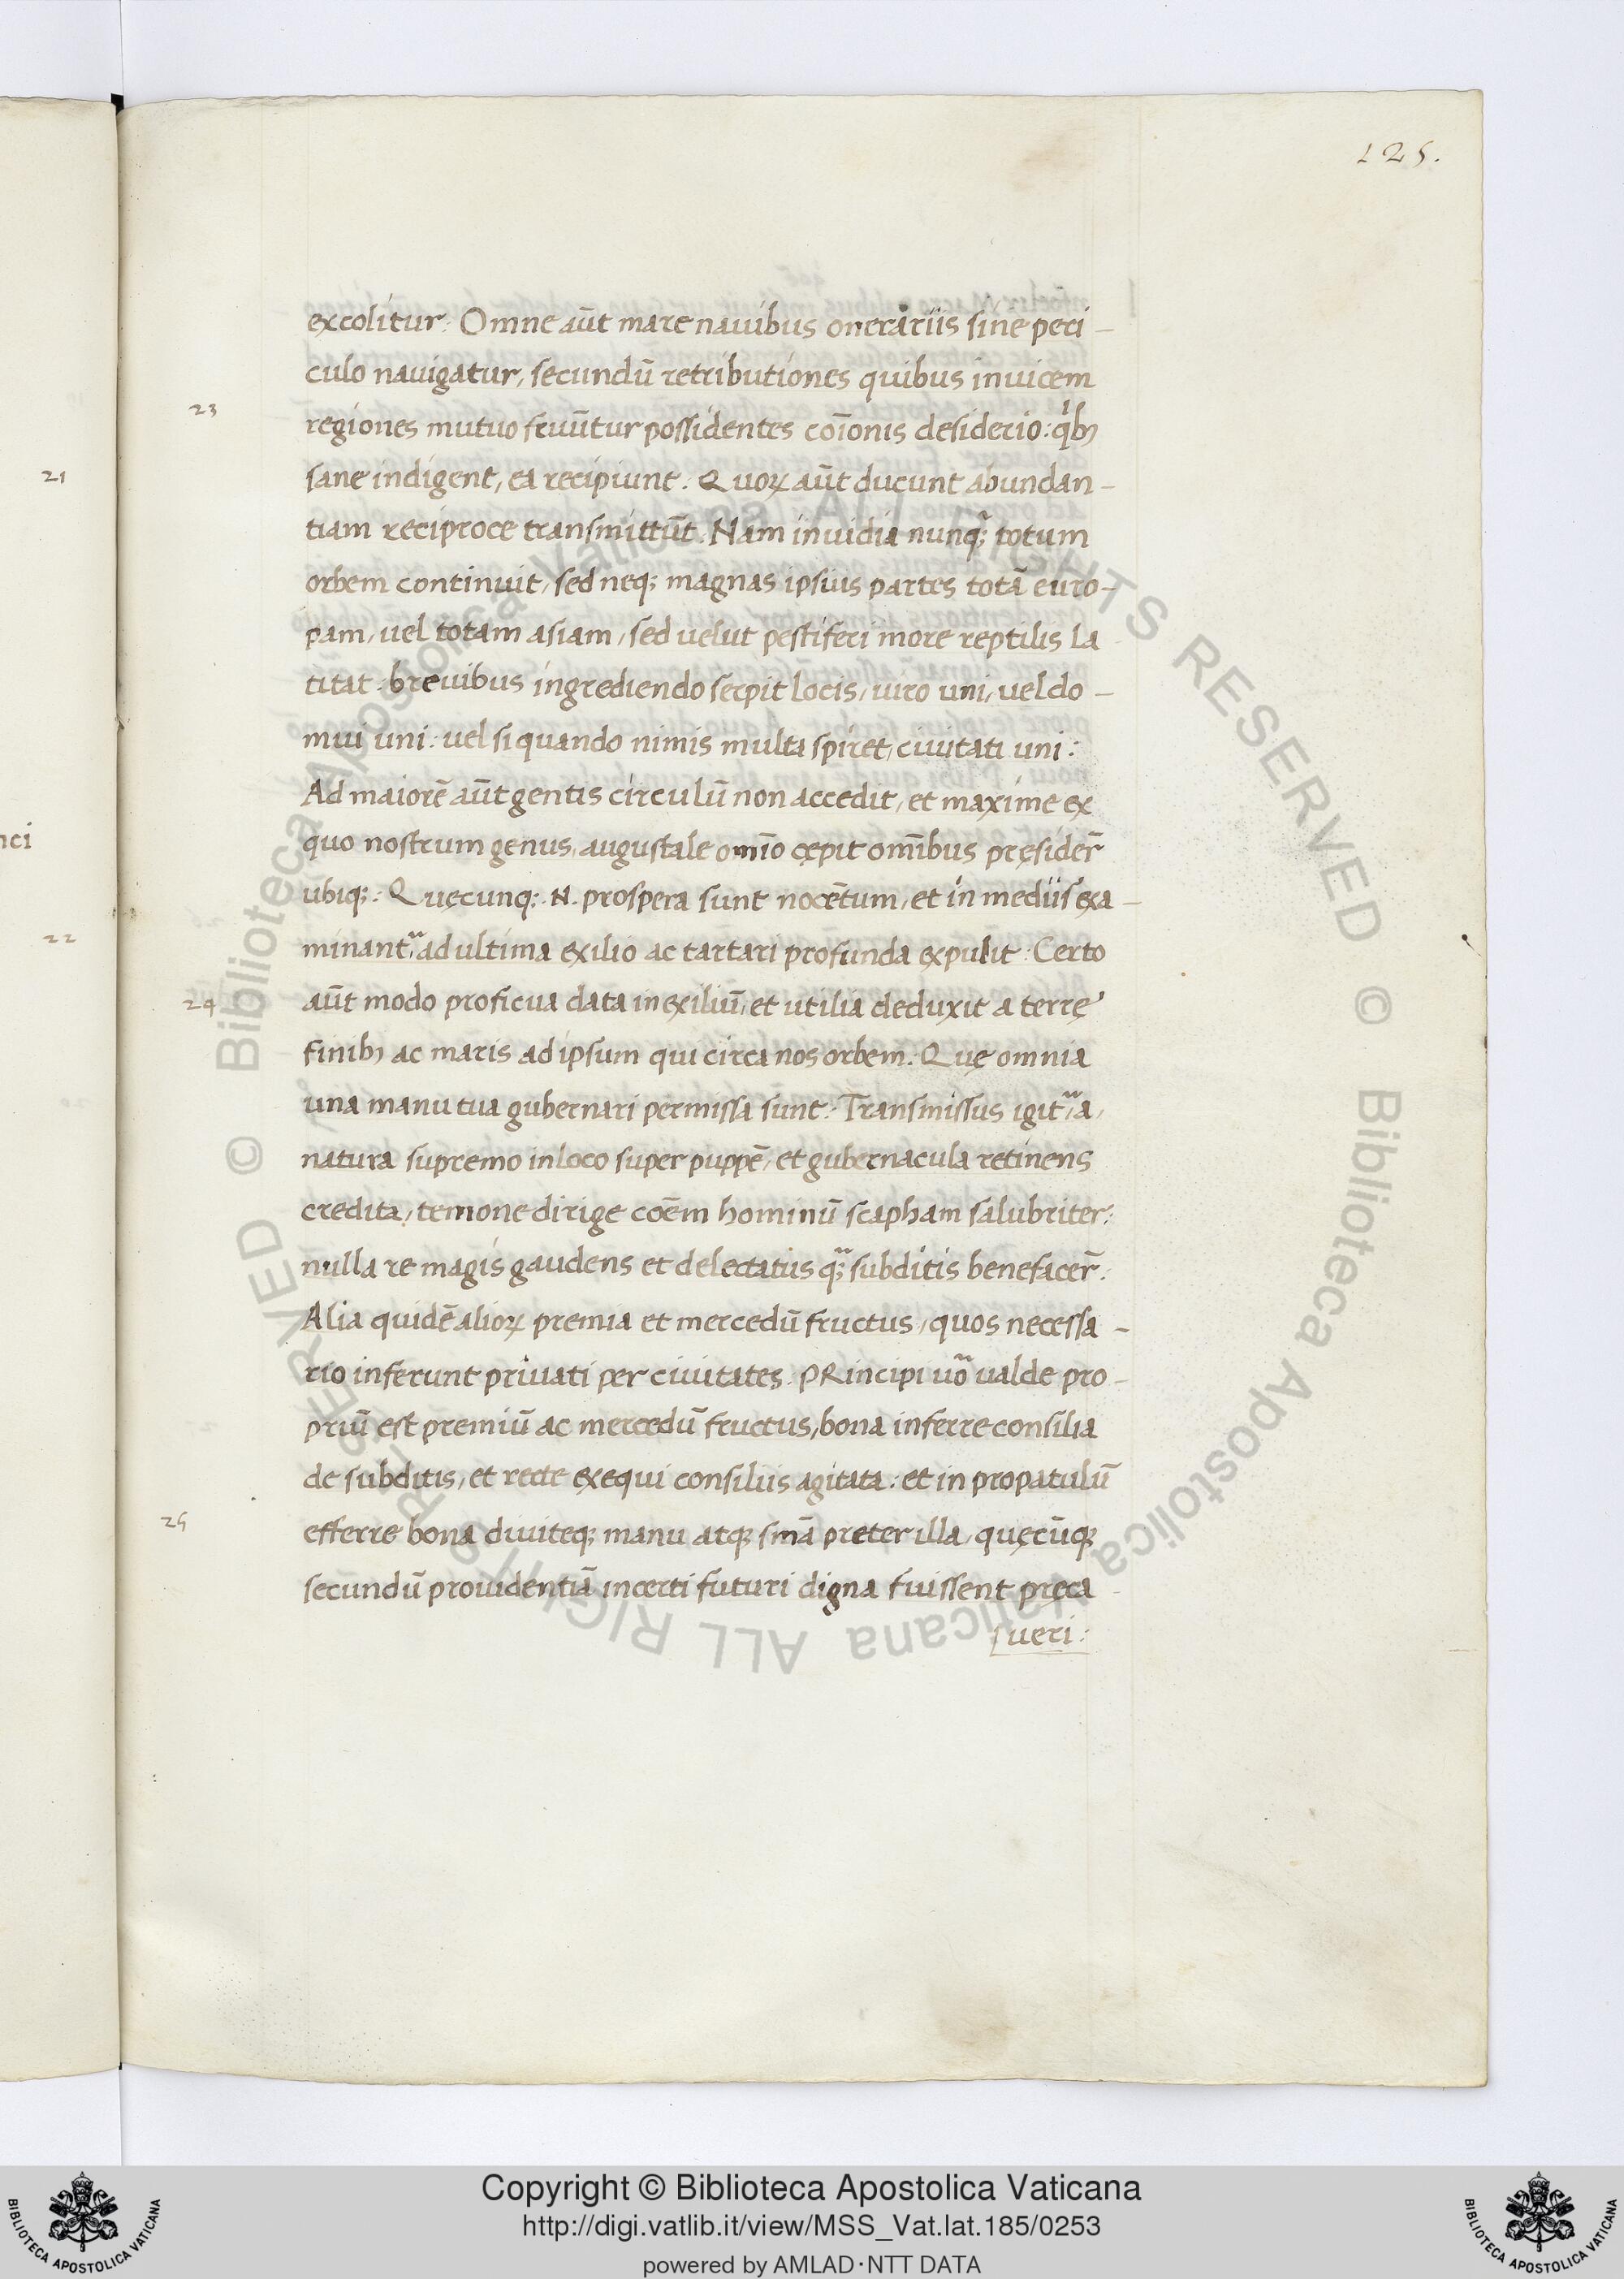 125.
excolitur: Omne aūt mare nauibus onerariis sine peri-
culo nauigatur, secundū retributiones quibus inuicem
23
regiones mutuo fruūtur possidentes coīonis desiderio: qͥbꝫ
21
sane indigent, ea recipiunt. Quoꝝ aūt ducunt abundan-
tiam reciproce transmittūt. Nam inuidia nunqꝫ̃ totum
orbem continuit, sed neqꝫ magnas ipsius partes totā euro-
pam, uel totam asiam, sed uelut pestiferi more reptilis la
titat: breuibus ingrediendo serpit locis, uiro uni, uel do-
mui uni: uel si quando nimis multa spiret, ciuitati uni:
Ad maiorē aūt gentis circulū non accedit, et maxime ex
nci
quo nostrum genus, augustale om̄io cępit om̄ibus pręsider̄
ubiqꝫ: Quęcunqꝫ .N. prospera sunt nocētum, et in mediis exa-
22
minant᷑, ad ultima exilio ac tartari profunda expulit: Certo
24
aūt modo proficua data in exiliū, et utilia deduxit a terrę
finibꝫ ac maris ad ipsum qui circa nos orbem. Quę omnia
una manu tua gubernari permissa sunt: Transmissus igit᷑, a,
natura supremo in loco super puppē, et gubernacula retinens
credita, temone dirige coēm hominū scapham salubriter:
nulla re magis gaudens et delectatus qꝫ̃ subditis benefacer̄:
Alia quidē alioꝝ premia et mercedū fructus, quos necessa-
rio inferunt priuati per ciuitates. PRincipi uo᷑ ualde pro-
priū est premiū ac mercedū fructus, bona inferre consilia
de subditis, et recte exequi consiliis agitata: et in propatulū
25
efferre bona diuiteqꝫ manu atqꝫ smā preter illa, quęcūqꝫ
secundū prouidentiā incerti futuri digna fuissent pręca
ueri:
© Biblioteca Apostolica Vaticana ALL RIGHTS RESERVED © Biblioteca Apostolica Vaticana ALL RIGHTS RESERVED
Copyright © Biblioteca Apostolica Vaticana
http://digi.vatlib.it/view/MSS_Vat.lat.185/0253
powered by AMLAD·NTT DATA
BIBLIOTECA APOSTOLICA VATICANA
BIBLIOTECA APOSTOLICA VATICANA